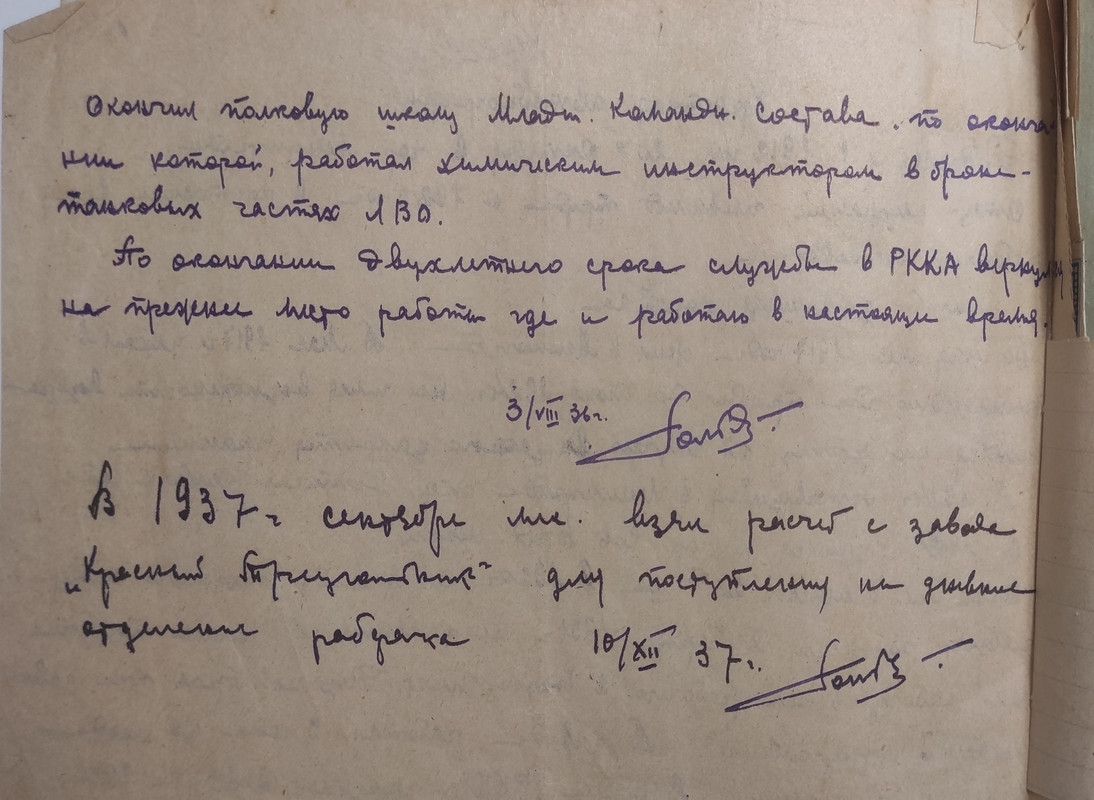 Окончил полковую школу Младш. Командн. Состава. по оконча
нии которой, работал химическим инструктором в броне-
танковых частях ЛВО.
По окончании двухлетнего срока службы в РККА вернулся
на прежнее место работы где и работаю в настоящее время.
3/VIII 36г.
В 1937г сентябре м-це. взял расчет с завода
„Красный Треугольник" для поступления на дневное
отделение рабфака
10/XII 37г.